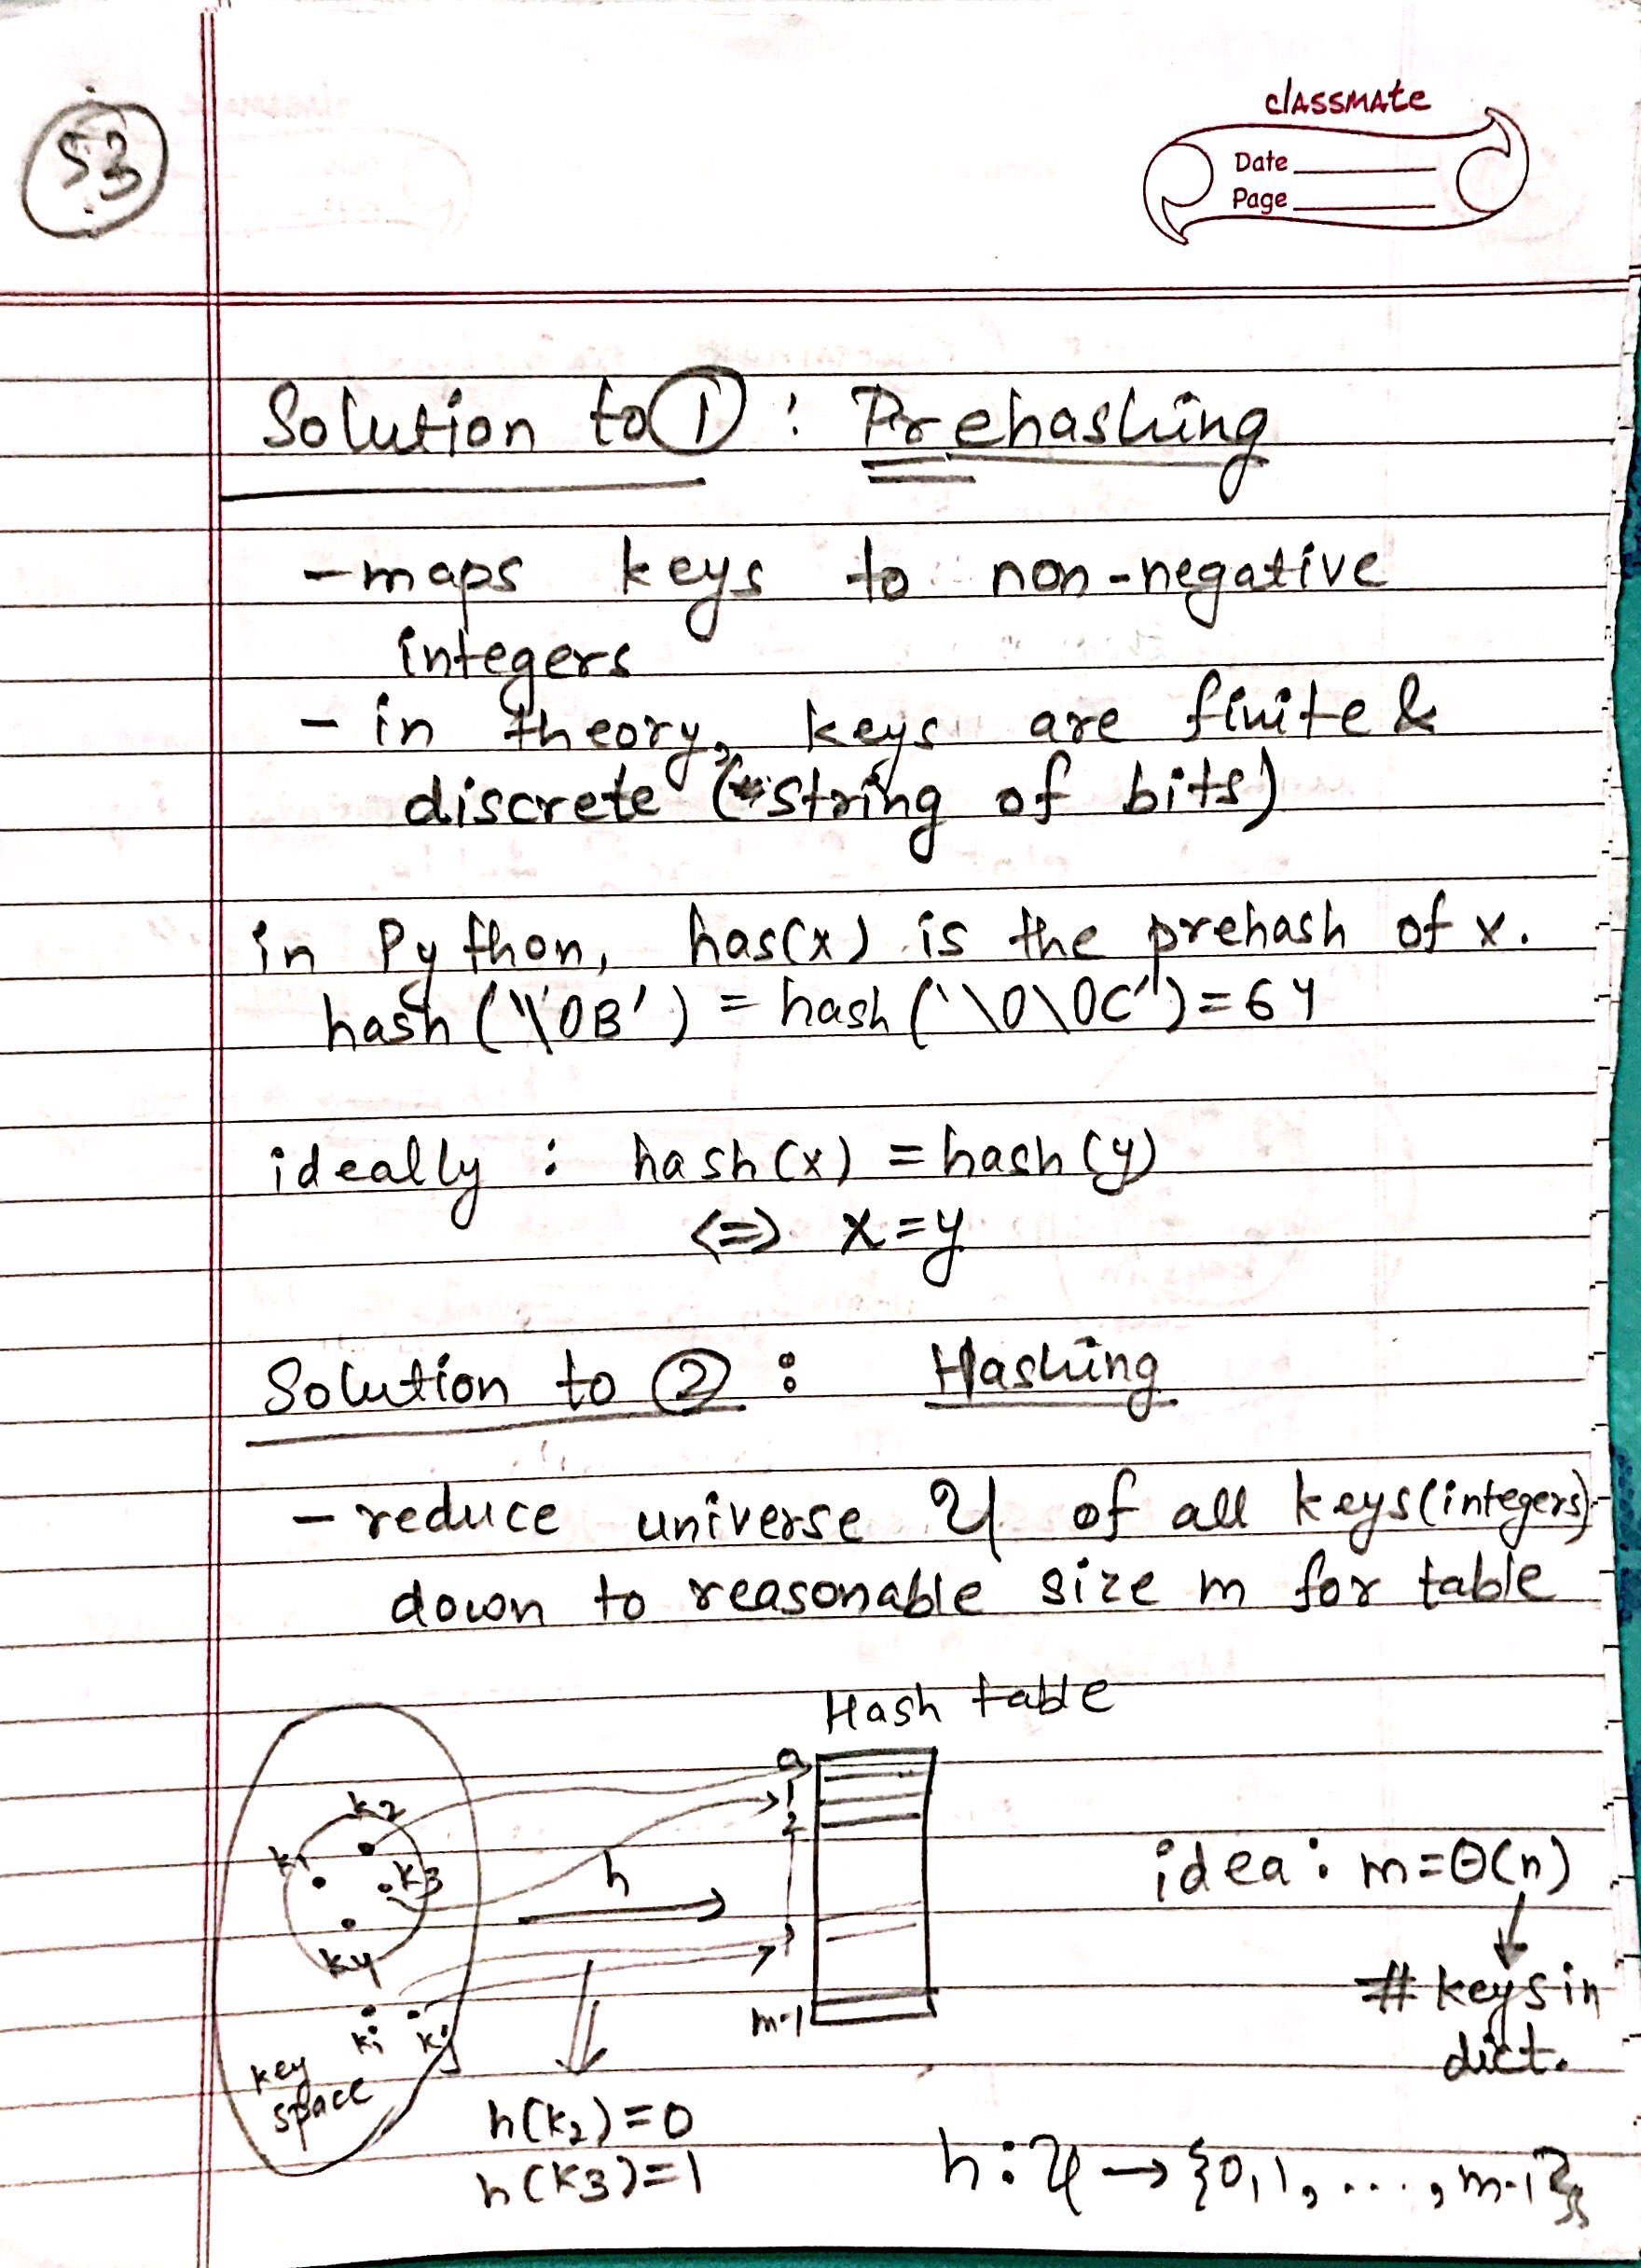 53
classmate
Date
Page
Solution to ① : Prehashing
- maps keys to non-negative
integers
- in theory, keys are finite &
discrete (string of bits)
in Python, has(x) is the prehash of x.
hash ('\0B') = hash ('\0\0C') = 64
ideally : hash (x) = hash (y)
<=> x = y
Solution to ② : Hashing
- reduce universe U of all keys (integers)
down to reasonable size m for table
Hash table
0
1
2
k2
k1
k3
h
idea : m = Θ(n)
k4
# keys in
ki kj
m-1
dict.
key
space
h(k2) = 0
h(k3) = 1
h : U → {0, 1, ..., m-1}